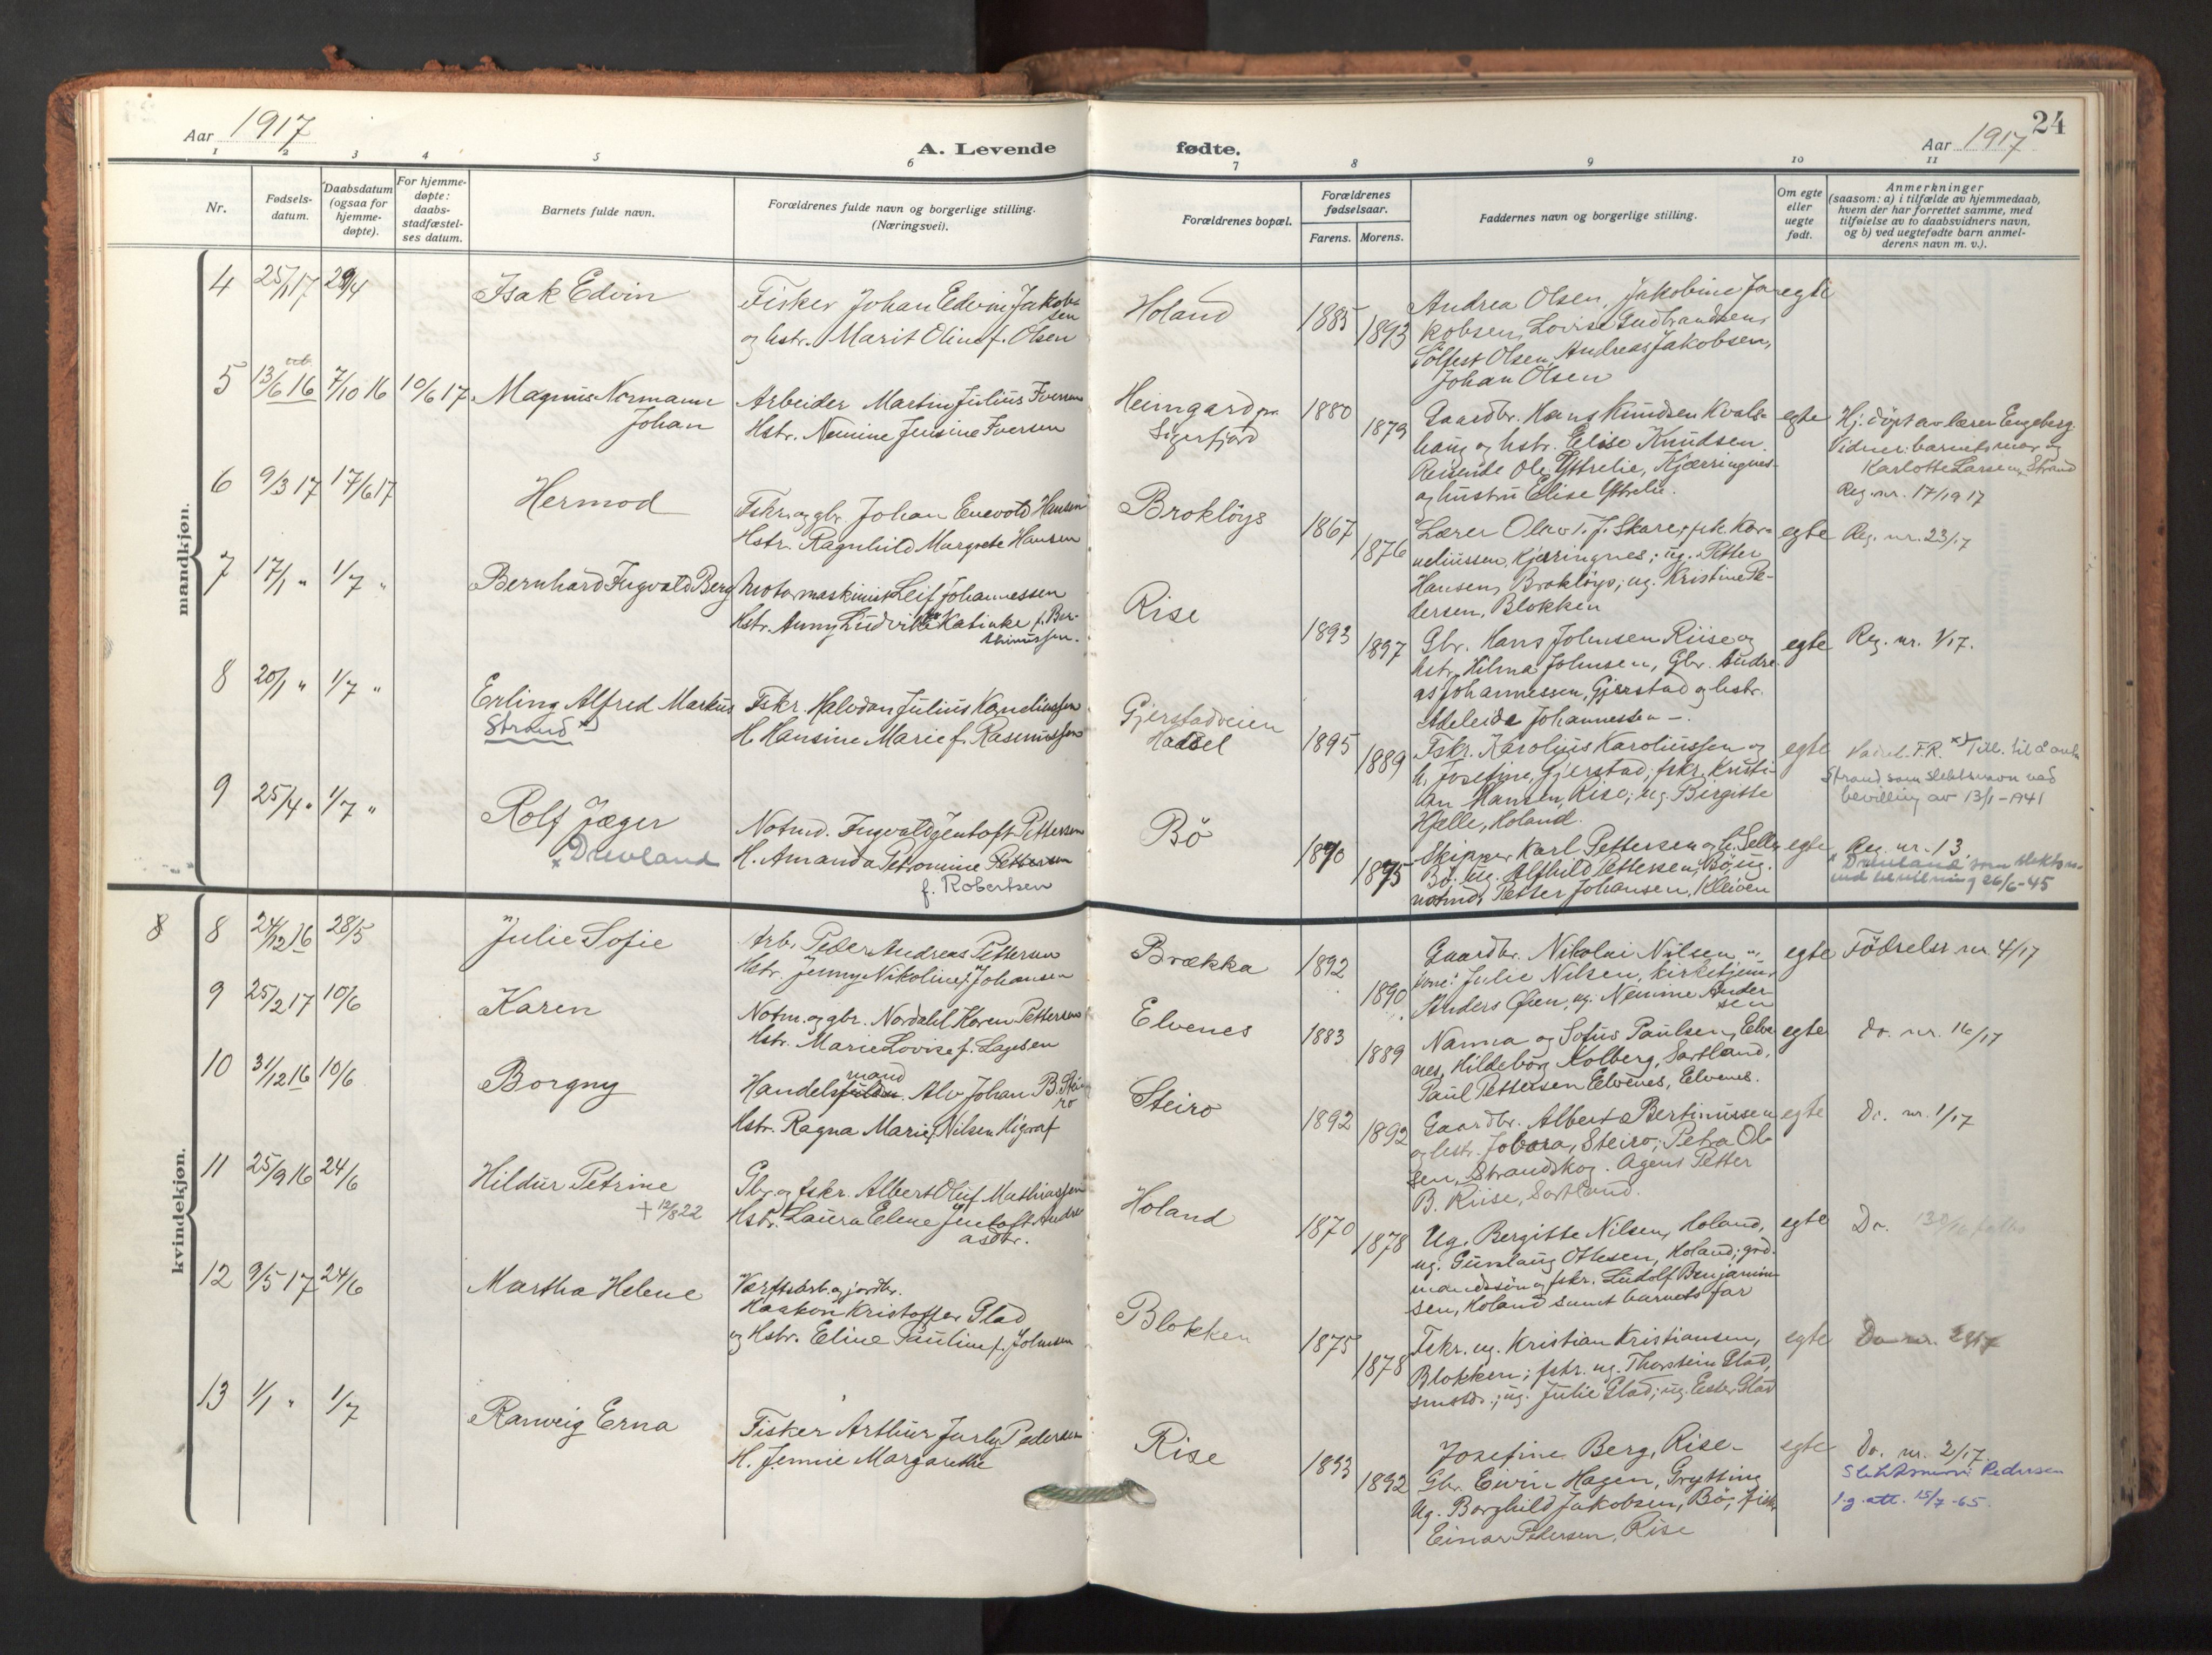 24
Aar 1917
A. Levende fødte.
Aar 1917
1 2 3 4 5 6 7 8 9 10 11
Nr.
Fødsels-
datum.
Daabsdatum
(ogsaa for
hjemme-
døpte).
For hjemme-
døpte:
daabs-
stadfæstel-
ses datum.
Barnets fulde navn.
Forældrenes fulde navn og borgerlige stilling.
(Næringsvei).
Forældrenes bopæl.
Forældrenes
fødselsaar.
Farens. Morens.
Faddernes navn og borgerlige stilling.
Om egte
eller
uegte
født.
Anmerkninger
(saasom: a) i tilfælde av hjemmedaab,
hvem der har forrettet samme, med
tilføielse av to daabsvidners navn,
og b) ved uegtefødte barn anmel-
derens navn m. v.).
mandkjøn.
4 25/1 17 29/4
Isak Edvin
Fisker Johan Edvin Jakob-
sen
og hstr. Marit Oline f. Olsen
Holand
1885 1893
Andrea Olsen, Jakobine Ja-
kobsen, Lovise Gudbrandsen,
Sölfest Olsen, Andreas Jakobsen,
Johan Olsen
egte
5 13/6 16 7/10 16 10/6 17
Magnus Normann
Johan
Arbeider Martin Julius Iversen
Hstr. Nemine Jensine Iversen
Heimgard pr.
Sigerfjord
1880 1879
Gaardbr. Hans Knudsen Kvals-
haug og hstr. Elise Knudsen
Reisende Ole Ytterlie, Kjærringnes
og hustru Elise Ytterlie.
egte
Hj. döpt av lærer Engeberg.
Vidner: barnets mor og
Karlotte Larsen, Strand
Reg. nr. 17/1917
6 9/3 17 17/6 17
Hermod
Fskr. og gbr. Johan Enevold Hansen
Hstr. Ragnhild Margrete Hansen
Broklöys
1867 1876
Lærer Olav T. J. Skare, fskr. Kor-
neliussen, Kjerringnes; ug. Petter
Hansen, Broklöys; ug. Kristine Pe-
dersen, Blokken
egte
Reg. nr. 23/17
7 17/1 " 1/7 "
Bernhard Ingvald Berg
Motormaskinist Leif Johannessen
Hstr. Anny Ludvikke Katinke f. Ber-
thinussen.
Rise
1893 1897
Gbr. Hans Johnsen Riise og
hstr. Hilma Johnsen, Gbr. Andre-
as Johannessen, Gjerstad og hstr.
Adeleide Johannessen –.
egte
Reg. nr. 1/17.
8 20/1 " 1/7 "
Erling Alfred Markus
Strand x)
Fskr. Halvdan Julius Korneliussen
H. Hansine Marie f. Rasmussen
Gjerstadveien
Hadsel
1895 1889
Fskr. Karolius Karoliussen og
h. Josefine, Gjerstad; fskr. Kristi-
an Hansen, Rise; ug. Birgitte
Hjelle, Holand.
egte
F.R. x) Till. til å anta
Strand som slektsnavn ved
bevilling av 13/1-1941
9 25/4 " 1/7 "
Rolf Jæger
x Drevland
Notmd. Ingvald Jentoft Pettersen
H. Amanda Petromine Pettersen
f. Robertsen
1870 1875
Skipper Karl Pettersen og h. Selly
Bö. Ug. Alfhild Pettersen, Bö; ug.
notmd. Petter Johansen, Kleiven
Bö
egte
Reg. nr. 13
x Drevland som slektsn.
ved bevilning 26/6-45
kvindekjøn.
8 8 24/12 16 28/5
Julie Sofie
Arb. Peder Andreas Pettersen
Hstr. Jenny Nikoline f. Johansen
Brækka
1892 1890
Gaardbr. Nikolai Nilsen,
Julie Nilsen, kirketjen.
Anders Öien, ug. Nemine Ander-
sen
egte
Födselsr. nr. 4/17
9 25/2 17 10/6
Karen
Notm. og gbr. Nordahl Koren Pettersen
Hstr. Marie Lovise f. Lagesen
Elvenes
1883 1889
Nanna og Sofus Paulsen, Elve-
nes, Hildebörg Kolberg, Sortland,
Paul Pettersen Elvenes, Elvenes.
egte
do. nr. 16/17
10 31/12 16 10/6
Borgny
Handelsmand Alv Johan B. Stei-
ro
Hstr. Ragna Marie f. Nilsen Higraf
Steiro
1892 1892
Gaardbr. Albert Bertinussen
og hstr. Jobara, Steiro; Petra Ol-
sen, Strandskog. Agent Petter
B. Riise, Sortland.
egte
Do. nr. 1/17
11 25/9 16 24/6
Hildur Petrine
+ 12/8 22
Gbr. og fskr. Albert Oluf Mathiassen
Hstr. Laura Elene Jentoft Andre-
asdtr.
Holand
1870 1878
Ug. Bergitte Nilsen, Holand,
ug. Gunlaug Ottesen, Holand; grd-
mandssön og fskr. Ludolf Benjamin-
sen, Holand samt barnets far
egte
Do.
12 9/5 17 24/6
Martha Helene
Værftsarb. og jordbr.
Haakon Kristoffer Glad
og Hstr. Eline Pauline f. Johnsen
Blokken
1875 1878
Fskr. ug. Kristian Kristiansen,
Blokken; fskr. ug. Thorstein Glad,
smstds.; ug. Julie Glad; ug. Ester Glad
egte
Do nr. 29/17
13 1/1 " 1/7
Ranveig Erna
Fisker Arthur Jurly Pedersen
H. Jennie Margarethe
Rise
1893 1892
Josefine Berg, Rise –
Gbr. Eivin Hagen, Grytting
Ug. Borghild Jakobsen, Bö; fisk.
Einar Pedersen, Rise
egte
Do. nr. 2/17.
Slektsnavn: Pedersen
l.g. att. 15/7-65.